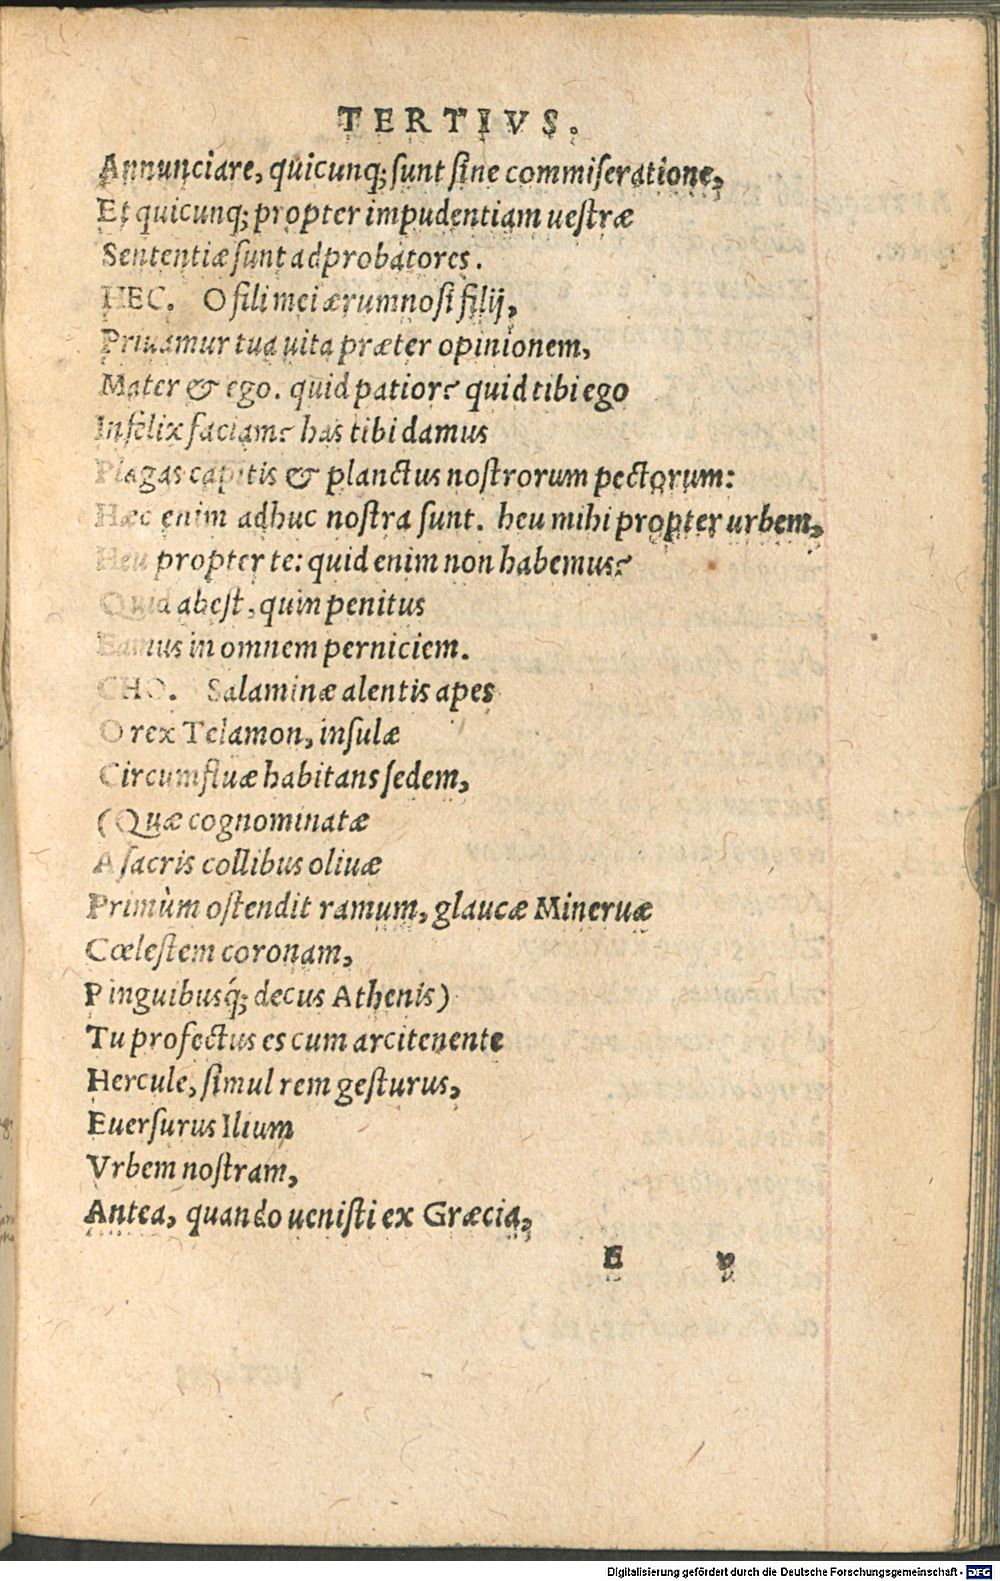 TERTIVS.
Annunciare, quicunq; sunt sine commiseratione,
Et quicunq; propter impudentiam uestræ
Sententiæ sunt adprobatores.
HEC. O fili mei ærumnosi filij,
Priuamur tua uita præter opinionem,
Mater & ego. quid patior? quid tibi ego
Infelix faciam? has tibi damus
Plagas capitis & planctus nostrorum pectorum:
Hæc enim adhuc nostra sunt. heu mihi propter urbem,
Heu propter te: quid enim non habemus?
Quid abest, quin penitus
Eamus in omnem perniciem.
CHO. Salaminæ alentis apes
O rex Telamon, insulæ
Circumfluæ habitans sedem,
(Quæ cognominatæ
A sacris collibus oliuæ
Primùm ostendit ramum, glaucæ Mineruæ
Cœlestem coronam,
Pinguibusq́; decus Athenis)
Tu profectus es cum arcitenente
Hercule, simul rem gesturus,
Euersurus Ilium
Vrbem nostram,
Antea, quando uenisti ex Græcia,
E v
Digitalisierung gefördert durch die Deutsche Forschungsgemeinschaft - DFG